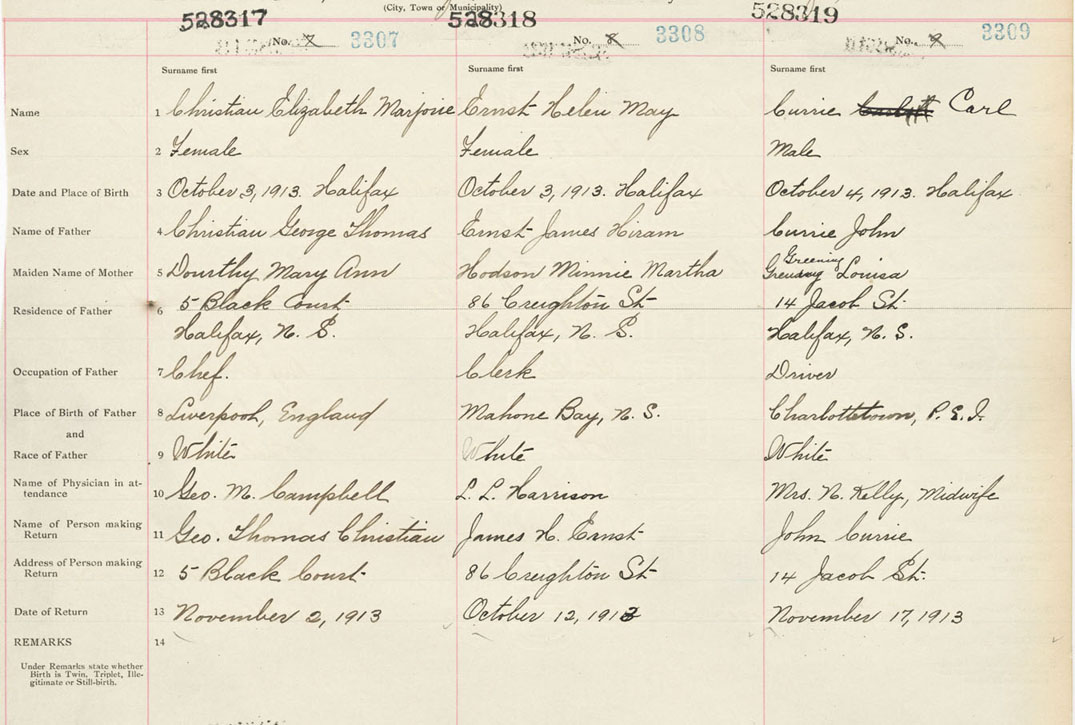 (City, Town or Municipality)
528317 528318 528319
No. 7 3307 No. 8 3308 No. 9 3309
Surname first Surname first Surname first
Name 1 Christian Elizabeth Marjorie Ernst Helen May Currie Carl
Sex 2 Female Female Male
Date and Place of Birth 3 October 3, 1913. Halifax October 3, 1913. Halifax October 4, 1913. Halifax
Name of Father 4 Christian George Thomas Ernst James Hiram Currie John
Greening
Maiden Name of Mother 5 Dourthy Mary Ann Hodson Minnie Martha Louisa
Residence of Father 6 5 Black Court 86 Creighton St 14 Jacob St.
Halifax, N. S. Halifax, N. S. Halifax, N. S.
Occupation of Father 7 Chef. Clerk Driver
Place of Birth of Father 8 Liverpool, England Mahone Bay, N. S. Charlottetown, P. E. I.
and
Race of Father 9 White White White
Name of Physician in at-
tendance 10 Geo. M. Campbell L. L. Harrison Mrs. N. Kelly, Midwife
Name of Person making
Return 11 Geo. Thomas Christian James H. Ernst John Currie
Address of Person making
Return 12 5 Black Court 86 Creighton St 14 Jacob St.
Date of Return 13 November 2, 1913 October 12, 1913 November 17, 1913
REMARKS 14
Under Remarks state whether
Birth is Twin, Triplet, Ille-
gitimate or Still-birth.